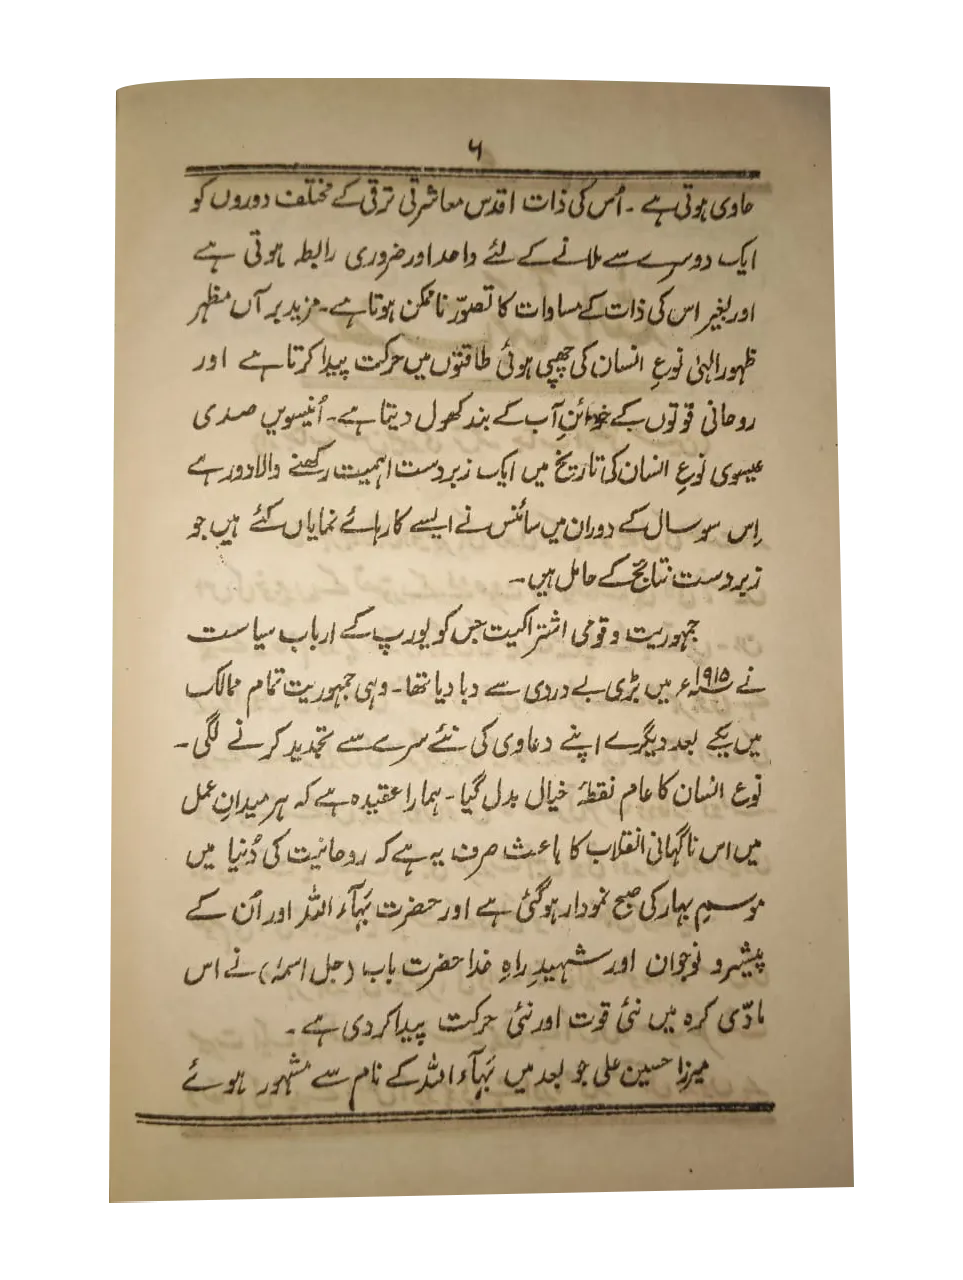 ۶
حاوی ہوتی ہے ۔ اُس کی ذات اقدس معاشرتی ترقی کے مختلف دوروں کو
ایک دوسرے سے ملانے کے لئے واحد اور ضروری رابطہ ہوتی ہے
اور بغیر اس کی ذات کے مساوات کا تصوّر ناممکن ہوتا ہے ۔ مزید بر آں مظہر
ظہور الہٰی نوعِ انسان کی چھپی ہوئی طاقتوں میں حرکت پیدا کرتا ہے اور
روحانی قوتوں کے خزائنِ آب کے بند کھول دیتا ہے ۔ اُنیسویں صدی
عیسوی نوعِ انسان کی تاریخ میں ایک زبردست اہمیت رکھنے والا دور ہے
اِس سو سال کے دوران میں سائنس نے ایسے کارہائے نمایاں کئے ہیں جو
زبردست نتائج کے حامل ہیں ۔
جمہوریت و قومی اشتراکیت جس کو یورپ کے ارباب سیاست
نے ۱۹۱۵ء میں بڑی بے دردی سے دبا دیا تھا ۔ وہی جمہوریت تمام ممالک
میں یکے بعد دیگرے اپنے دعاوی کی نئے سرے سے تجدید کرنے لگی ۔
نوعِ انسان کا عام نقطۂ خیال بدل گیا ۔ ہمارا عقیدہ ہے کہ ہر میدانِ عمل
میں اس ناگہانی انقلاب کا باعث صرف یہ ہے کہ روحانیت کی دُنیا میں
موسمِ بہار کی صبح نمودار ہو گئی ہے اور حضرت بَہآء اللّٰہ اور اُن کے
پیشرو نوجوان اور شہیدِ راہِ خدا حضرت باب (جل اسمہٗ) نے اس
مادّی کرہ میں نئی قوت اور نئی حرکت پیدا کر دی ہے ۔
میرزا حسین علی جو بعد میں بَہآء اللّٰہ کے نام سے مشہور ہوئے